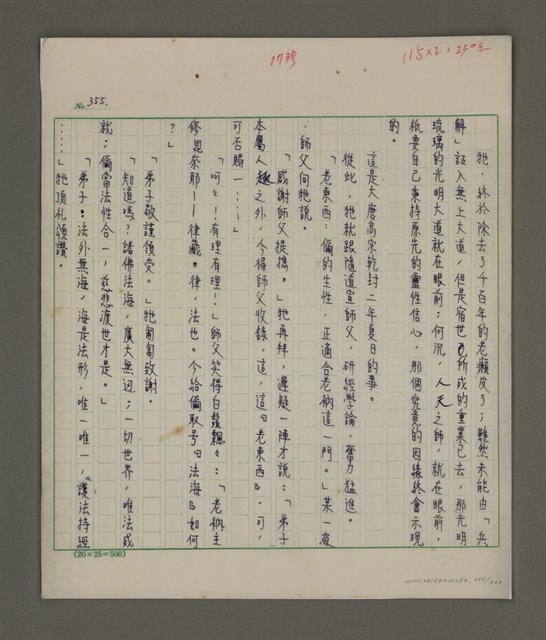 17張
115×2=230元
No. 355.
牠，終於除去了千百年的老癩皮了；雖然未能由「兵
解」証入無上大道，但是宿世已所成的重業已去，那光明
琉璃的光明大道就在眼前；何況，人天之師，就在眼前，
祇要自己秉持原先的靈性信心，那個究竟的因緣終會示現
的。
這是大唐高宗乾封二年夏日的事。
從此，牠就跟隨道宣師父，研經學論，奮力猛進。
「老東西：倆的生性，正適合老衲這一門。」某一夜
，師父向牠說。
「感謝師父提攜。」牠再拜，遲疑一陣才說：「弟子
本屬人趣之外，今得師父收錄，這，這『老東西』，可，
可否賜一……」
「呵々！有理有理！」師父笑得白鬚飄々：「老衲主
修毘奈耶——律藏。律，法也。今給倆取号『法海』如何
？」
「弟子敬謹領受。」牠匍匐致謝。
「知道嗎？諸佛法海，廣大無边；一切世界，唯法成
就；倆當法性合一，慈悲渡世才是。」
「弟子：法外無海，海是法形，唯一唯一，護法持經
……」牠頂礼頌讚。
(20×25=500)